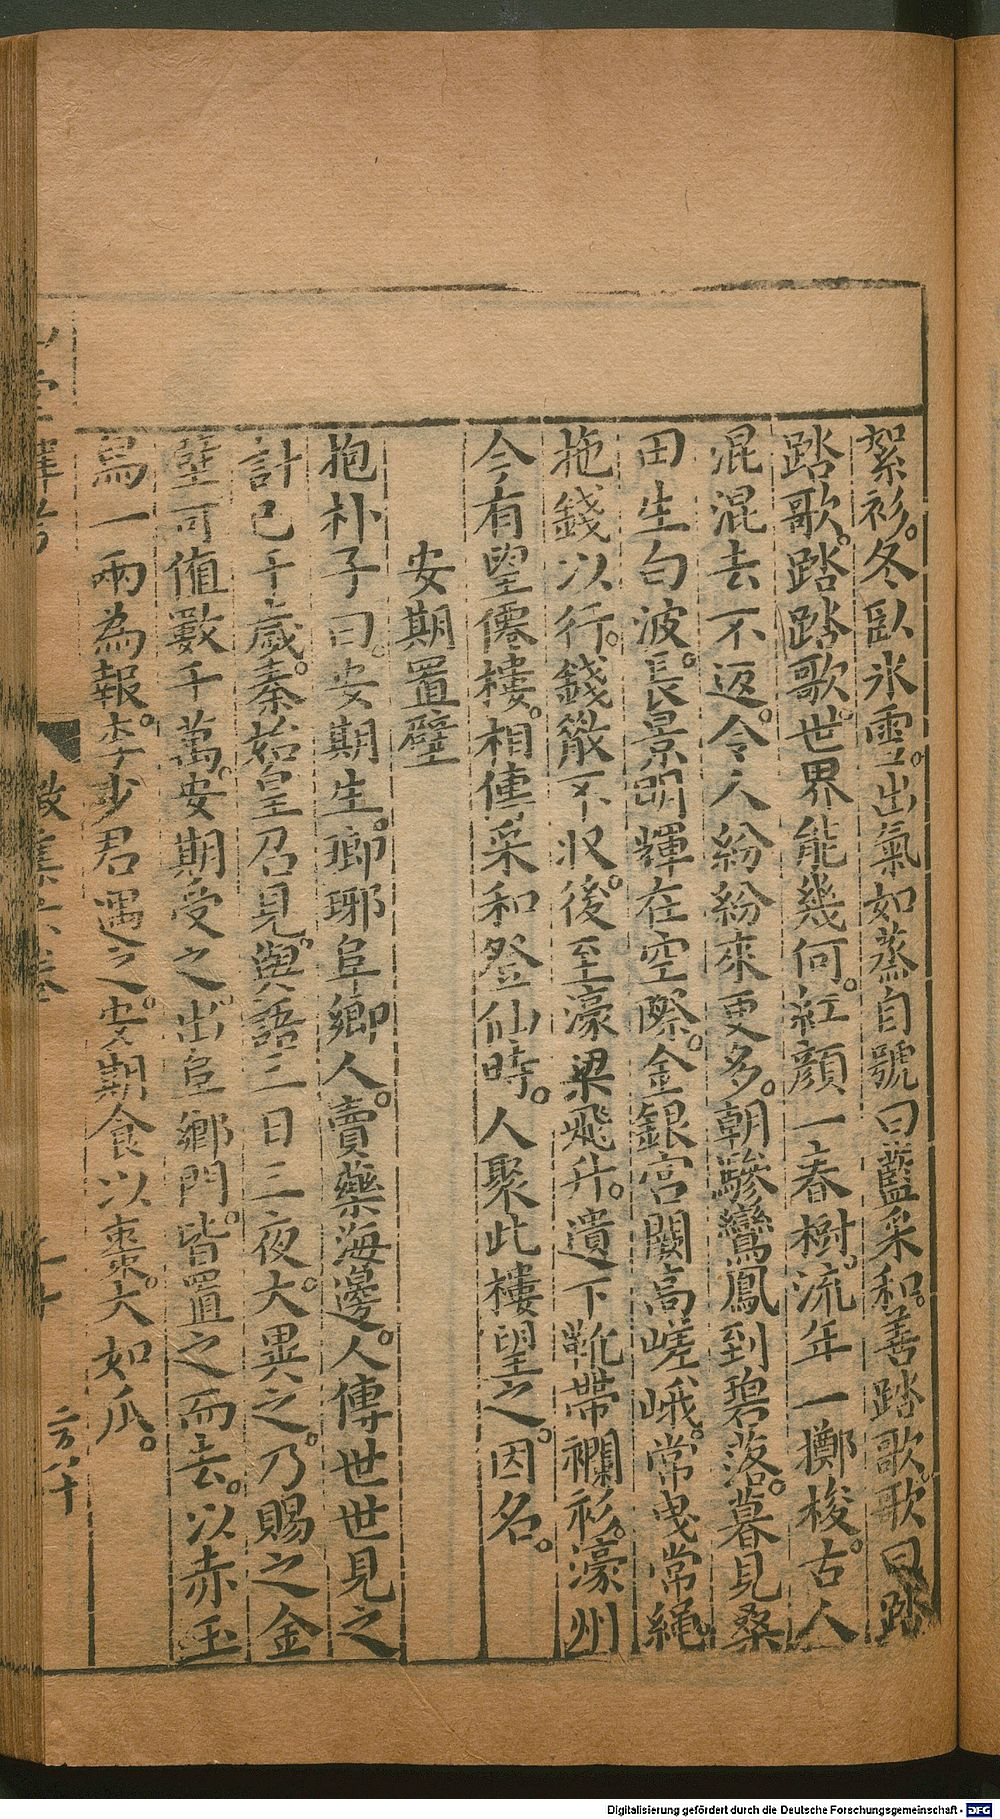 絮衫。冬臥氷雪。出氣如蒸自號曰藍采和。善踏歌。歌曰踏
踏歌。踏踏歌。世界能幾何。紅顏一春樹。流年一擲梭。古人
混混去不返。今人紛紛來更多。朝驂鸞鳳到碧落。暮見桑
田生白波。長景明輝在空際。金銀宮闕高嵯峨。常曳常繩
拖錢以行。錢散不収。後至濠梁飛升。遺下靴帶襴衫。濠州
今有望僊樓。相傳采和登仙時。人聚此樓望之。因名。
安期置壁
抱朴子曰。安期生。瑯琊阜鄉人。賣藥海邊。人傳世世見之
計已千歲。秦始皇召見。與語三日三夜。大異之。乃賜之金
壁可値數千萬。安期受之。出阜鄉門。皆置之而去。以赤玉
舄一兩為報。李少君遇之。安期食以棗。大如瓜。
Digitalisierung gefördert durch die Deutsche Forschungsgemeinschaft - DFG